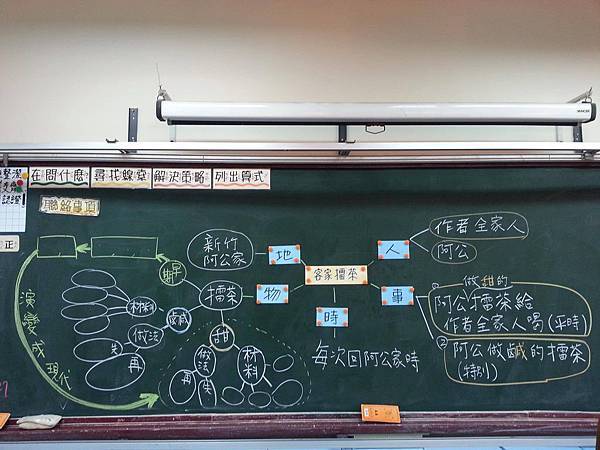 在問什麼?
尋找線索
解決策略
列出算式
聯絡事項
正
新竹
阿公家
地
客家擂茶
人
作者全家人
阿公
物
擂茶
時
每次回阿公家時
事
做甜的
阿公擂茶給
作者全家人喝(平時)
②
阿公做鹹的擂茶
(特別)
甜
做法
再
先
材料
材料
做法
先
再
演變成現代